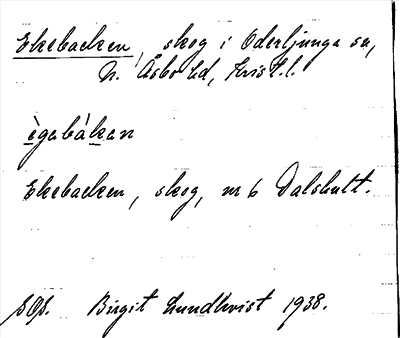 Ekebacken, skog i Oderljunga sn,
N. Åsbo hd, Krist. l.
ègabàkan
Ekebacken, skog, nr 6 Dalshult.
SOS. Birgit Lundkvist 1938.